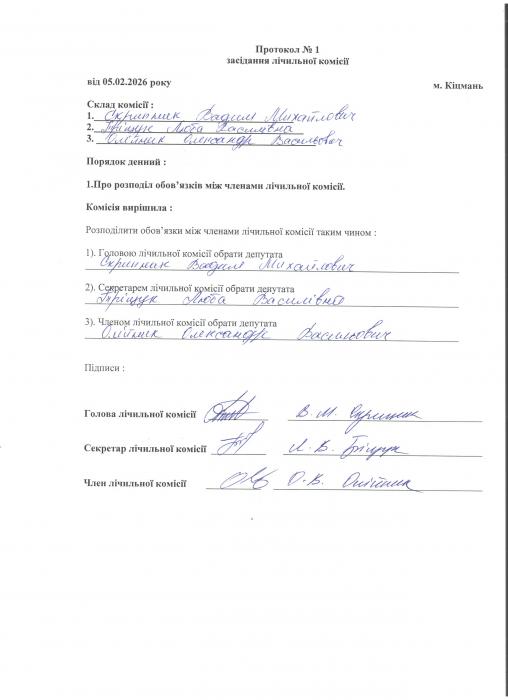 Протокол № 1
засідання лічильної комісії
від 05.02.2026 року
м. Кіцмань
Склад комісії :
1. Скрипник Вадим Михайлович
2. Гріщук Люба Василівна
3. Олійник Олександр Васильович
Порядок денний :
1.Про розподіл обов’язків між членами лічильної комісії.
Комісія вирішила :
Розподілити обов’язки між членами лічильної комісії таким чином :
1). Головою лічильної комісії обрати депутата
Скрипник Вадим Михайлович
2). Секретарем лічильної комісії обрати депутата
Гріщук Люба Василівна
3). Членом лічильної комісії обрати депутата
Олійник Олександр Васильович
Підписи :
Голова лічильної комісії В. М. Скрипник
Секретар лічильної комісії Л. В. Гріщук
Член лічильної комісії О. В. Олійник